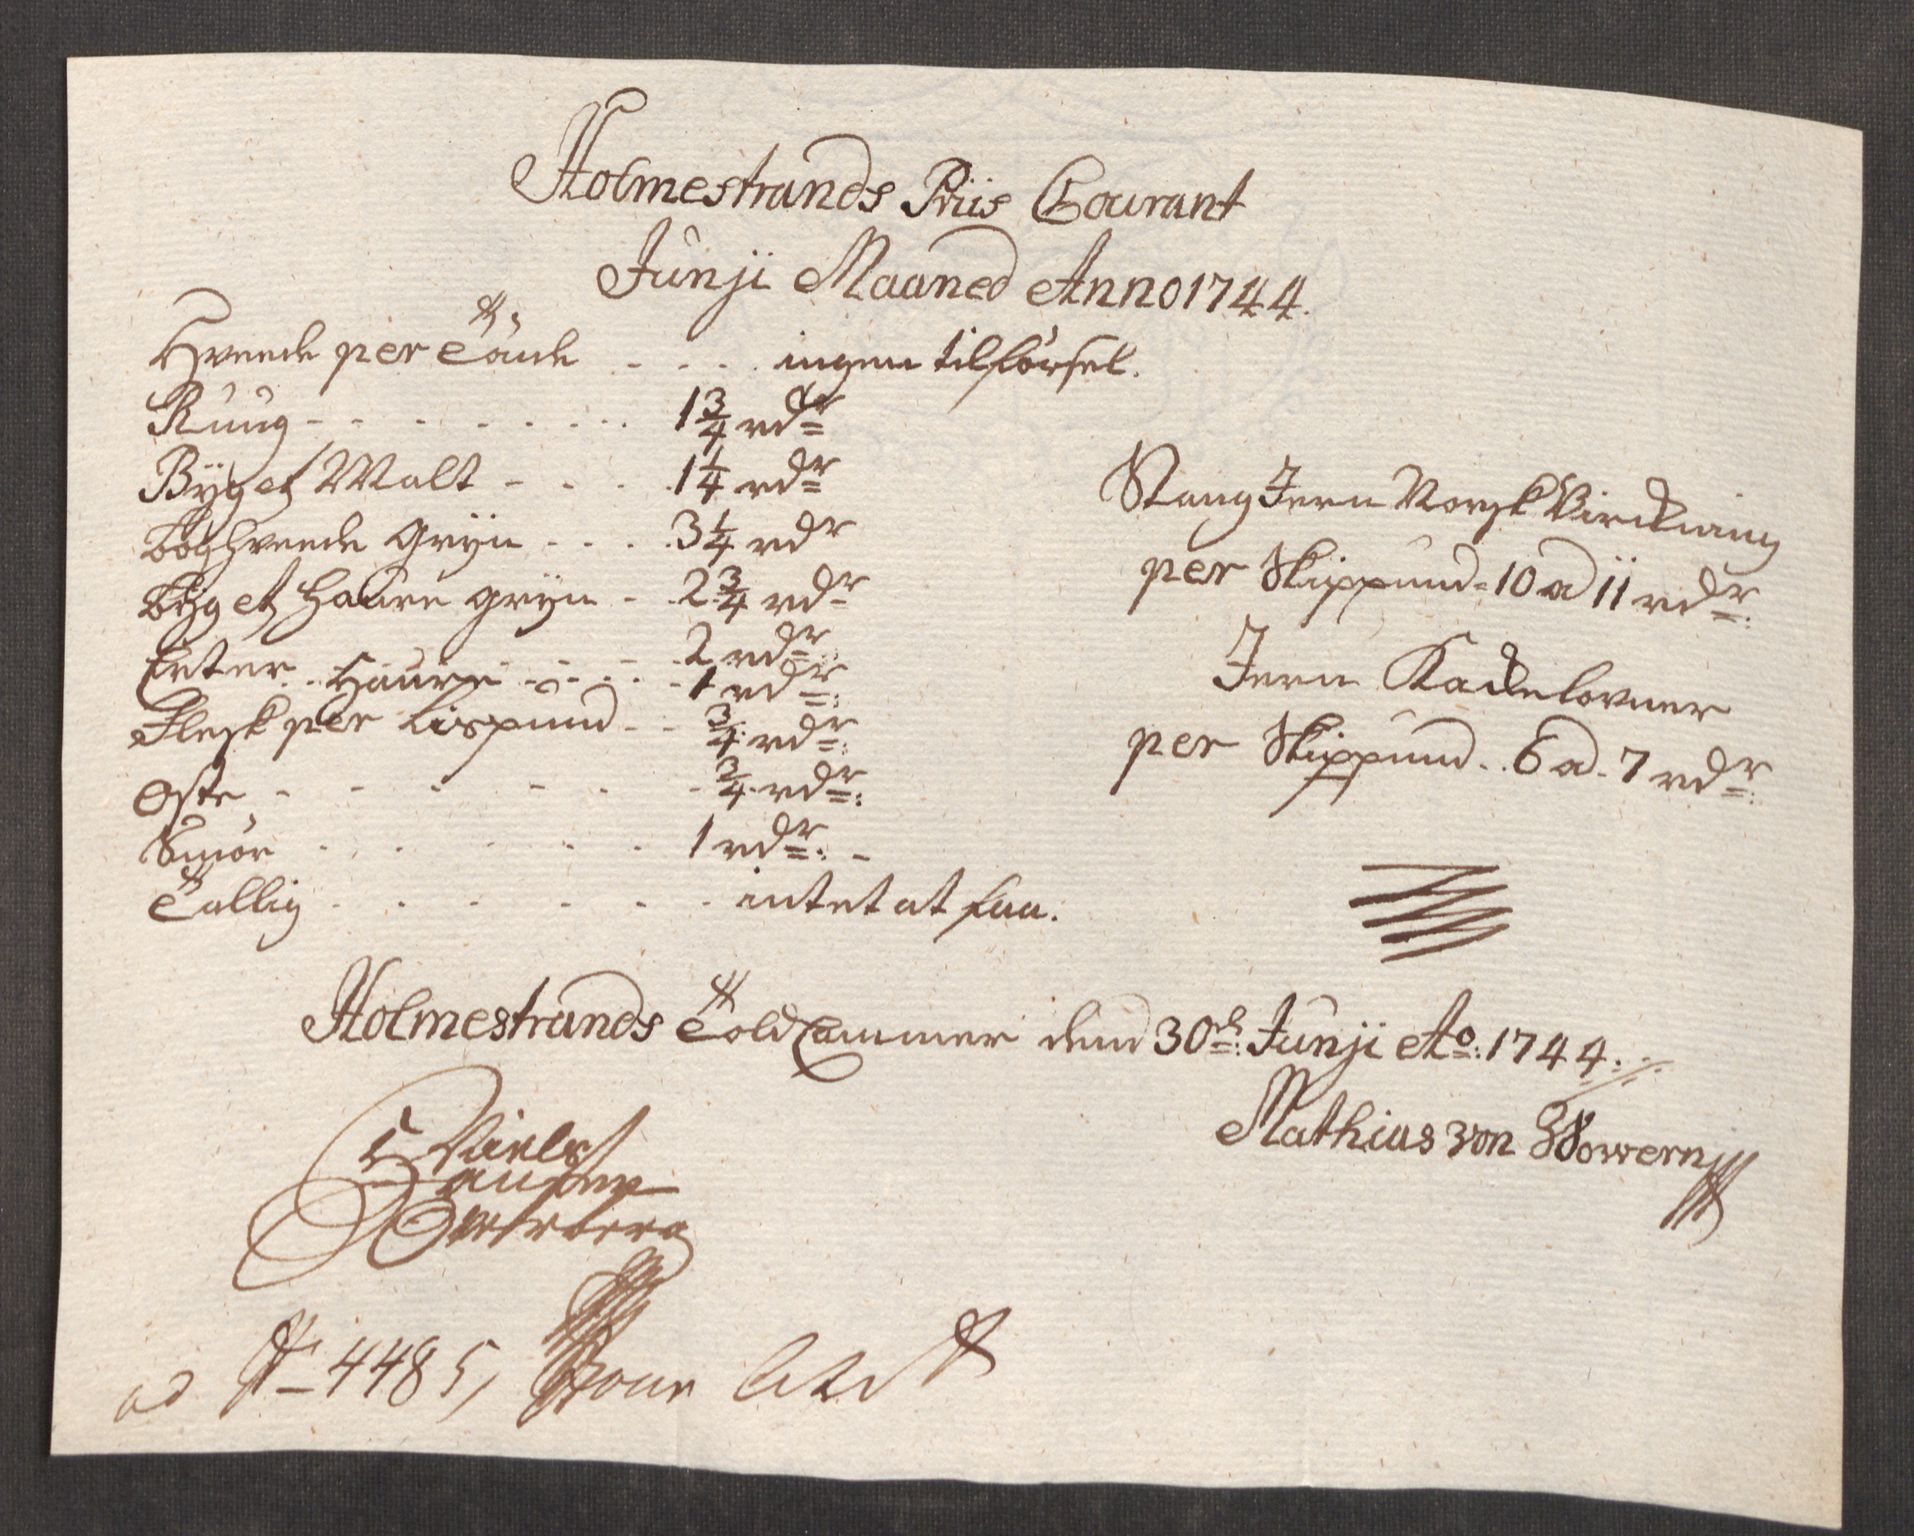 Holmestrands Priis Courant
Junji Maaned Anno 1744.
Hveede per Tönde - - - ingen tilförsel.
Ruug - - - - - - - - 1 3/4 rdr
Byg et Malt - - - 1 1/4 rdr
Boghveede Gryn - - - 3 1/4 rdr
Byg et Haure gryn - - 2 3/4 rdr
Erter - - - - 2 rdr
Haure - - - - 1 rdr
Flesk per Lispund - - 3/4 rdr
Oste - - - - - - 3/4 rdr
Smör - - - - - 1 rdr
Tallig - - - - - - intet at faa.
Stang Jern Norsk Virckning
per Skippund - 10 a 11 rdr
Jern Kackelovner
per Skippund - 6 a 7 rdr
Holmestrands Told Cammer dend 30te Junji Ao 1744
Niels
Hansen
Mathias von Wowern
ad No 4485,